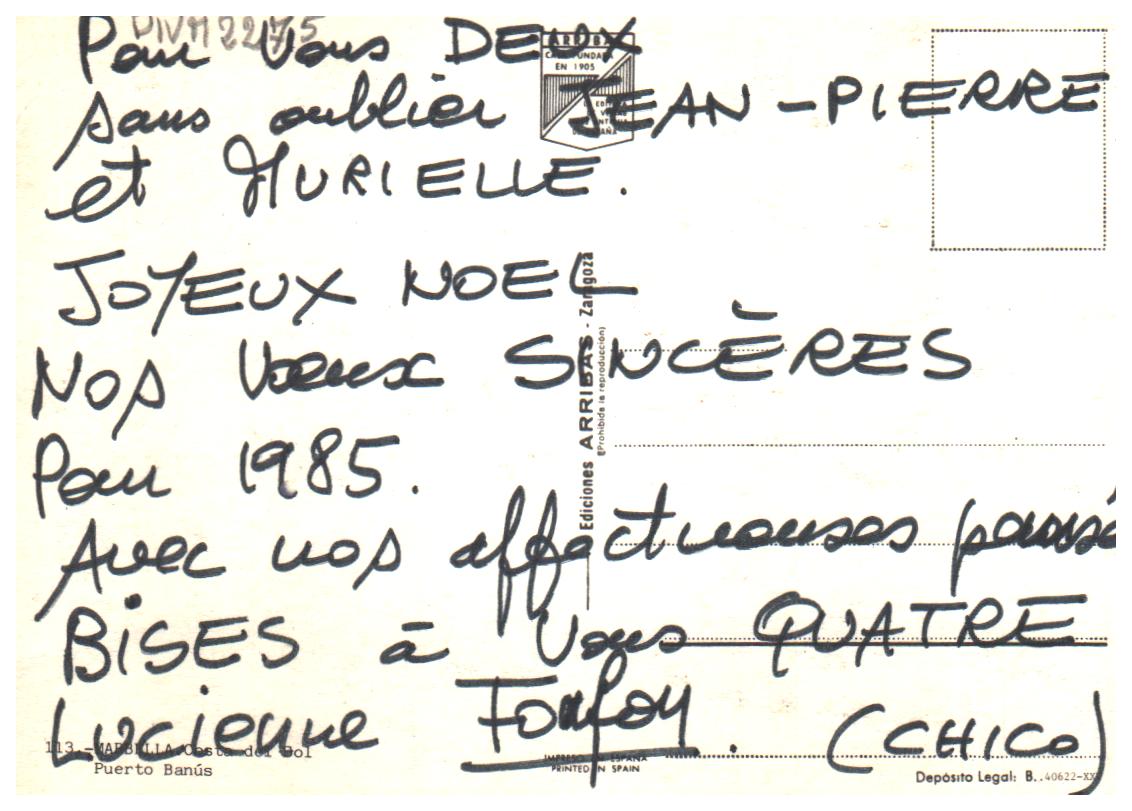 Pour Vous DEUX
sans oublier JEAN-PIERRE
et MURIELLE.
JOYEUX NOEL
Nos Voeux SINCÈRES
Pour 1985.
Avec nos affectueuses pensé
BISES à Vous QUATRE
Lucienne FonFon. (CHICO)
ARRIBAS
CASA FUNDADA
EN 1905
Ediciones ARRIBAS - Zaragoza
(Prohibida la reproducción)
113.-MARBELLA Costa del Sol
Puerto Banús
IMPRESO EN ESPAÑA
PRINTED IN SPAIN
Depósito Legal: B..40622-XX